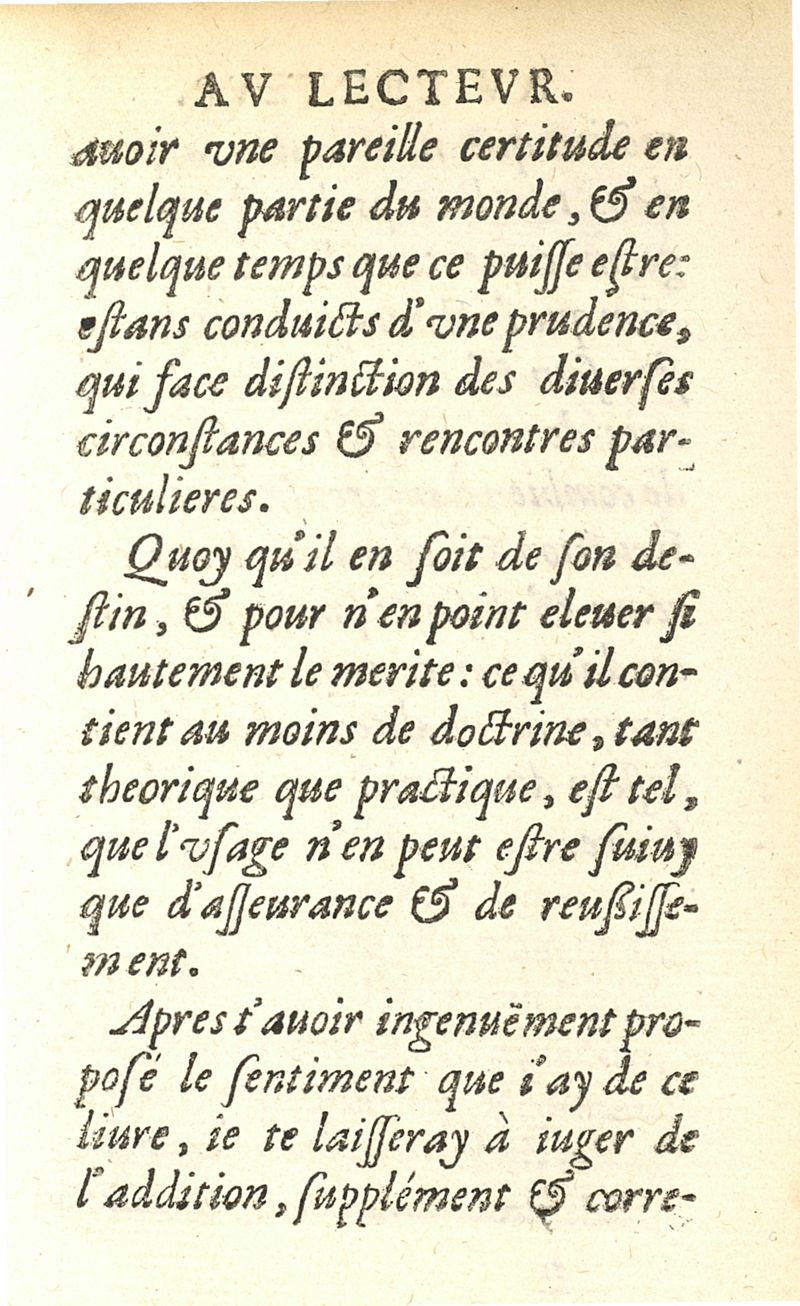 AV LECTEVR.
auoir vne pareille certitude en
quelque partie du monde, & en
quelque temps que ce puiſſe eſtre:
eſtans conduicts d'vne prudence,
qui face diſtinction des diuerſes
circonſtances & rencontres par-
ticulieres.
Quoy qu'il en ſoit de ſon de-
ſtin, & pour n'en point eleuer ſi
hautement le merite: ce qu'il con-
tient au moins de doctrine, tant
theorique que practique, eſt tel,
que l'vſage n'en peut eſtre ſuiuy
que d'aſſeurance & de reuſſiſſe-
ment.
Apres t'auoir ingenuëment pro-
poſé le ſentiment que i'ay de ce
liure, ie te laiſſeray à iuger de
l'addition, ſupplément & corre-